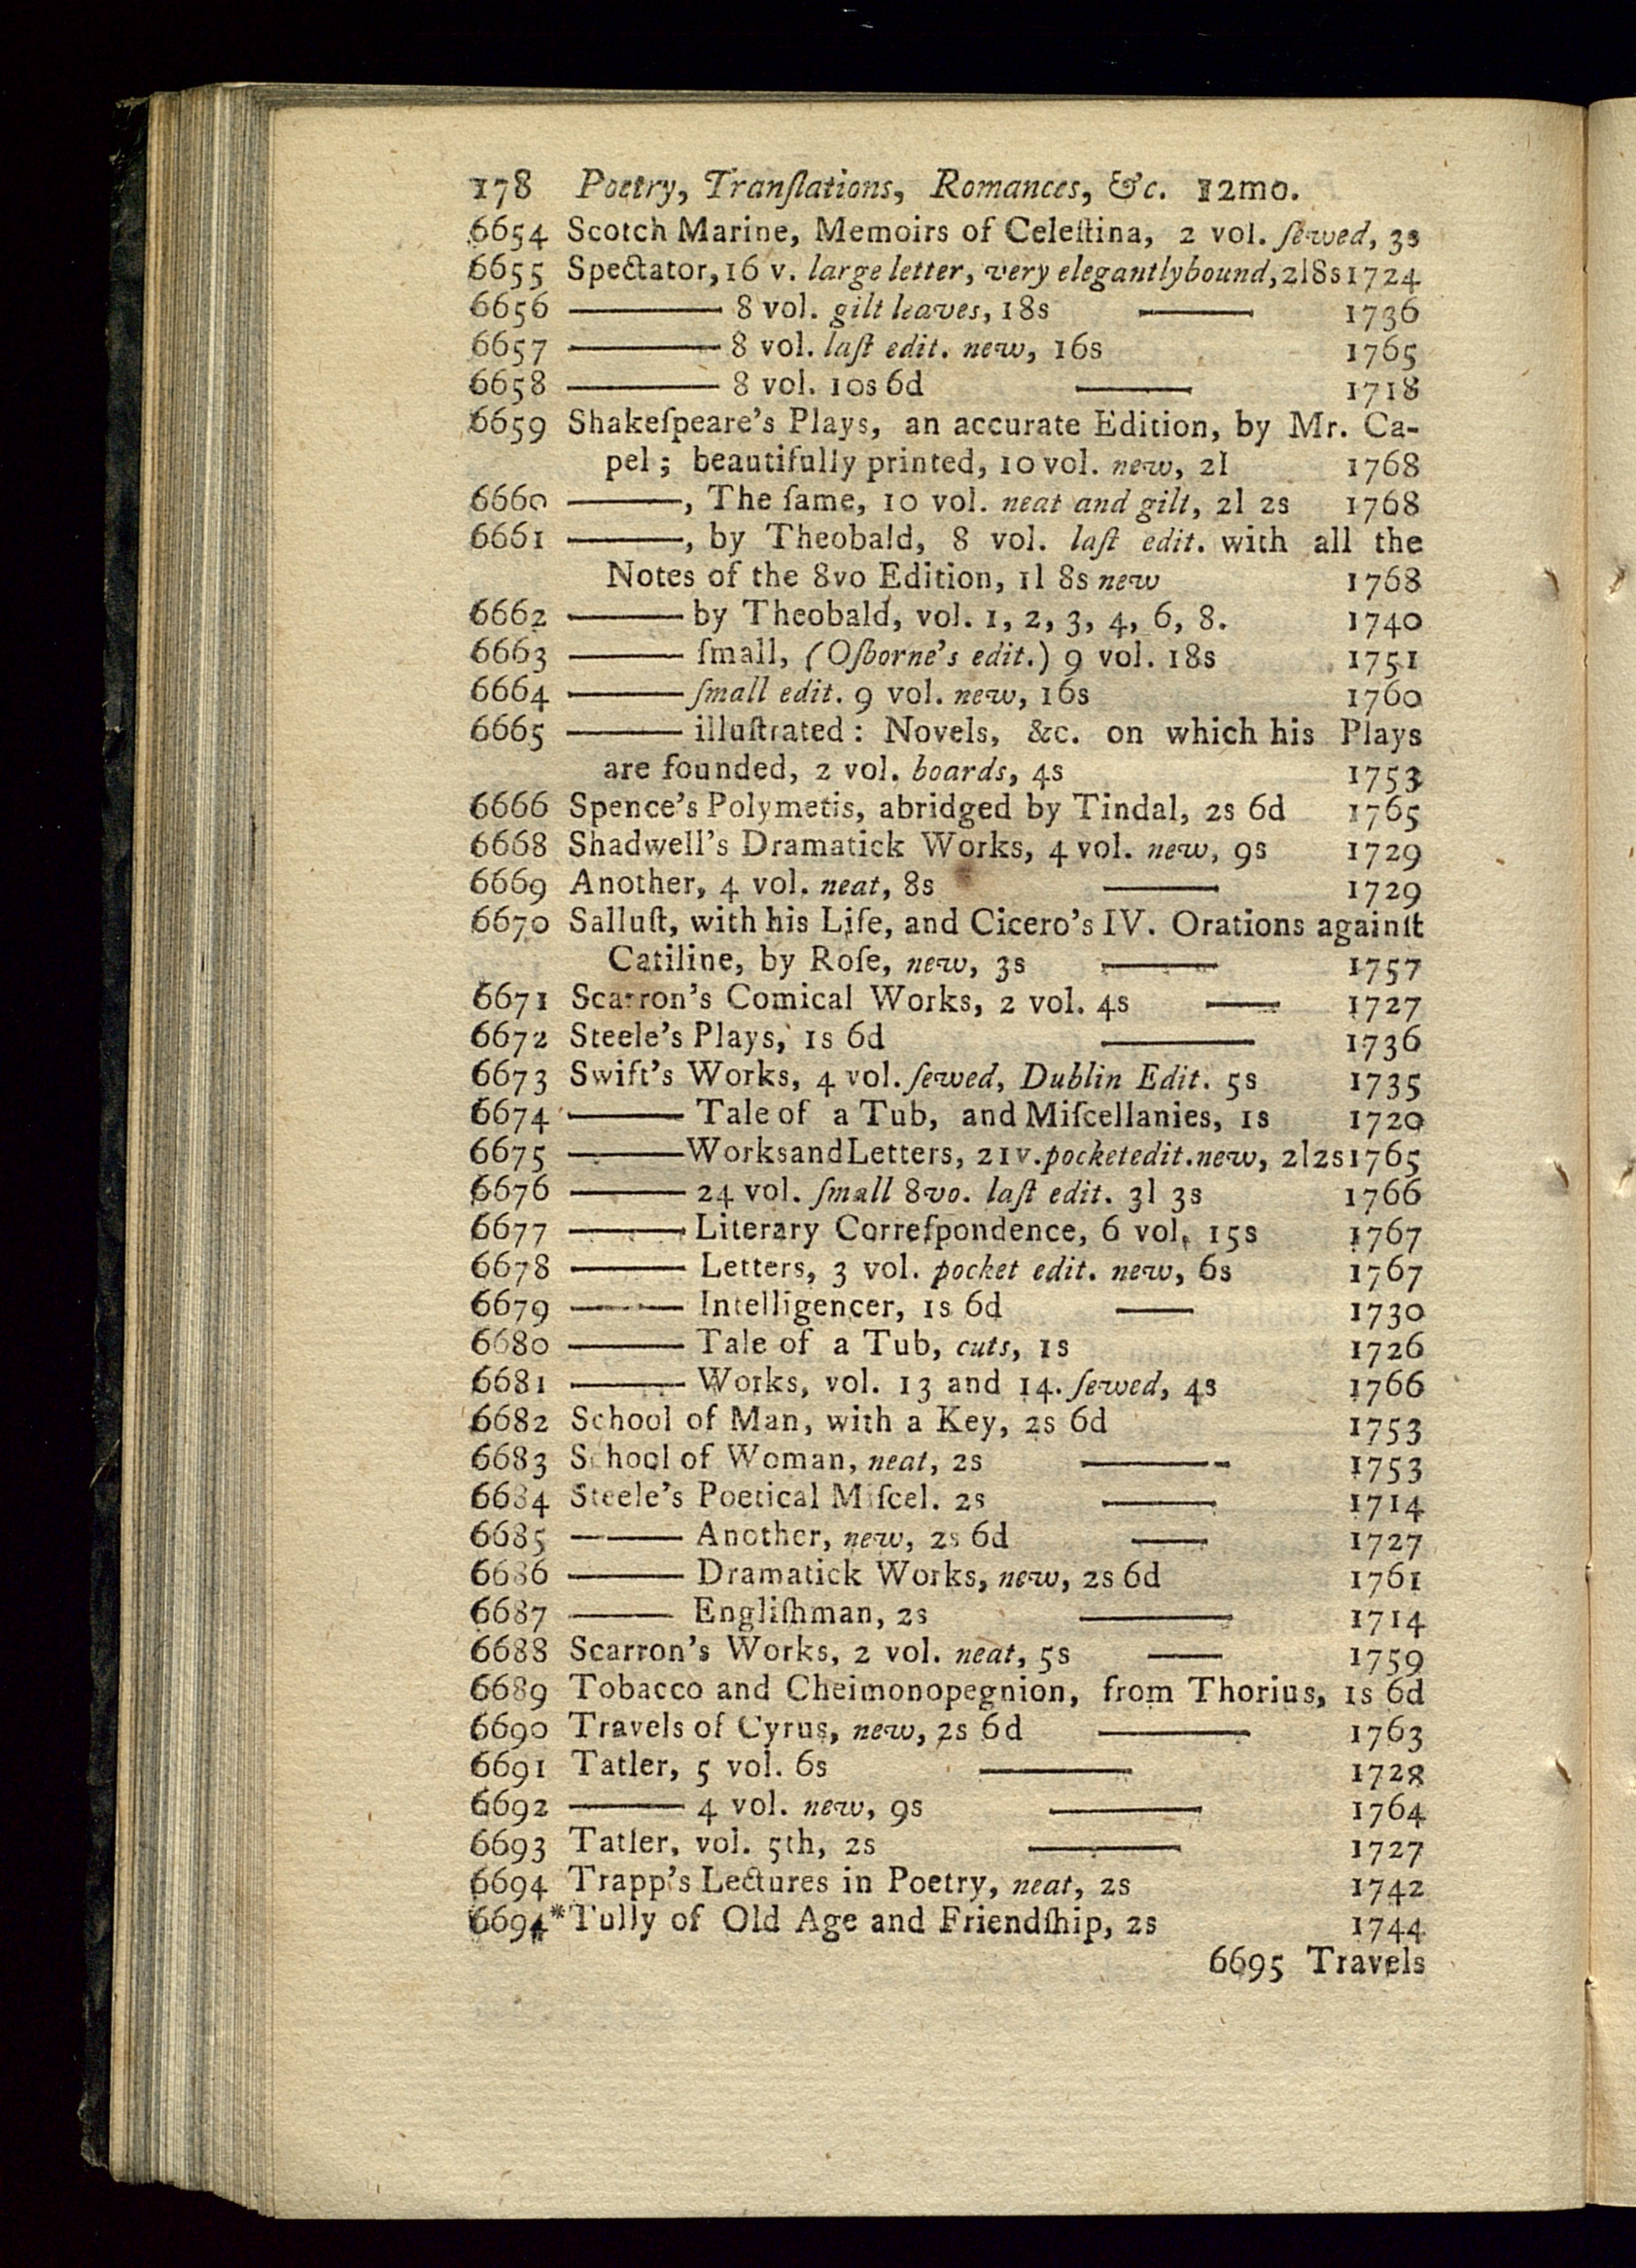 178 Poetry, Tranſlations, Romances, &c. 12mo.
6654 Scotch Marine, Memoirs of Celeſtina, 2 vol. ſewed, 3s
6655 Spectator, 16 v. large letter, very elegantly bound, 2l 8s 1724
6656 ——— 8 vol. gilt leaves, 18s ——— 1736
6657 ——— 8 vol. laſt edit. new, 16s 1765
6658 ——— 8 vol. 10s 6d ——— 1718
6659 Shakeſpeare's Plays, an accurate Edition, by Mr. Ca-
pel; beautifully printed, 10 vol. new, 2l 1768
6660 ———, The ſame, 10 vol. neat and gilt, 2l 2s 1768
6661 ———, by Theobald, 8 vol. laſt edit. with all the
Notes of the 8vo Edition, 1l 8s new 1768
6662 ——— by Theobald, vol. 1, 2, 3, 4, 6, 8. 1740
6663 ——— ſmall, (Oſborne's edit.) 9 vol. 18s 1751
6664 ——— ſmall edit. 9 vol. new, 16s 1760
6665 ——— illuſtrated: Novels, &c. on which his Plays
are founded, 2 vol. boards, 4s 1753
6666 Spence's Polymetis, abridged by Tindal, 2s 6d 1765
6668 Shadwell's Dramatick Works, 4 vol. new, 9s 1729
6669 Another, 4 vol. neat, 8s ——— 1729
6670 Salluſt, with his Life, and Cicero's IV. Orations againſt
Catiline, by Roſe, new, 3s ——— 1757
6671 Scarron's Comical Works, 2 vol. 4s ——— 1727
6672 Steele's Plays, 1s 6d ——— 1736
6673 Swift's Works, 4 vol. ſewed, Dublin Edit. 5s 1735
6674 ——— Tale of a Tub, and Miſcellanies, 1s 1720
6675 ——— Works and Letters, 21 v. pocket edit. new, 2l 2s 1765
6676 ——— 24 vol. ſmall 8vo. laſt edit. 3l 3s 1766
6677 ——— Literary Correſpondence, 6 vol. 15s 1767
6678 ——— Letters, 3 vol. pocket edit. new, 6s 1767
6679 ——— Intelligencer, 1s 6d ——— 1730
6680 ——— Tale of a Tub, cuts, 1s 1726
6681 ——— Works, vol. 13 and 14. ſewed, 4s 1766
6682 School of Man, with a Key, 2s 6d 1753
6683 School of Woman, neat, 2s ——— 1753
6684 Steele's Poetical Miſcel. 2s ——— 1714
6685 ——— Another, new, 2s 6d ——— 1727
6686 ——— Dramatick Works, new, 2s 6d 1761
6687 ——— Engliſhman, 2s ——— 1714
6688 Scarron's Works, 2 vol. neat, 5s ——— 1759
6689 Tobacco and Cheimonopegnion, from Thorius, 1s 6d
6690 Travels of Cyrus, new, 2s 6d ——— 1763
6691 Tatler, 5 vol. 6s ——— 1728
6692 ——— 4 vol. new, 9s ——— 1764
6693 Tatler, vol. 5th, 2s ——— 1727
6694 Trapp's Lectures in Poetry, neat, 2s 1742
6694* Tully of Old Age and Friendſhip, 2s 1744
6695 Travels